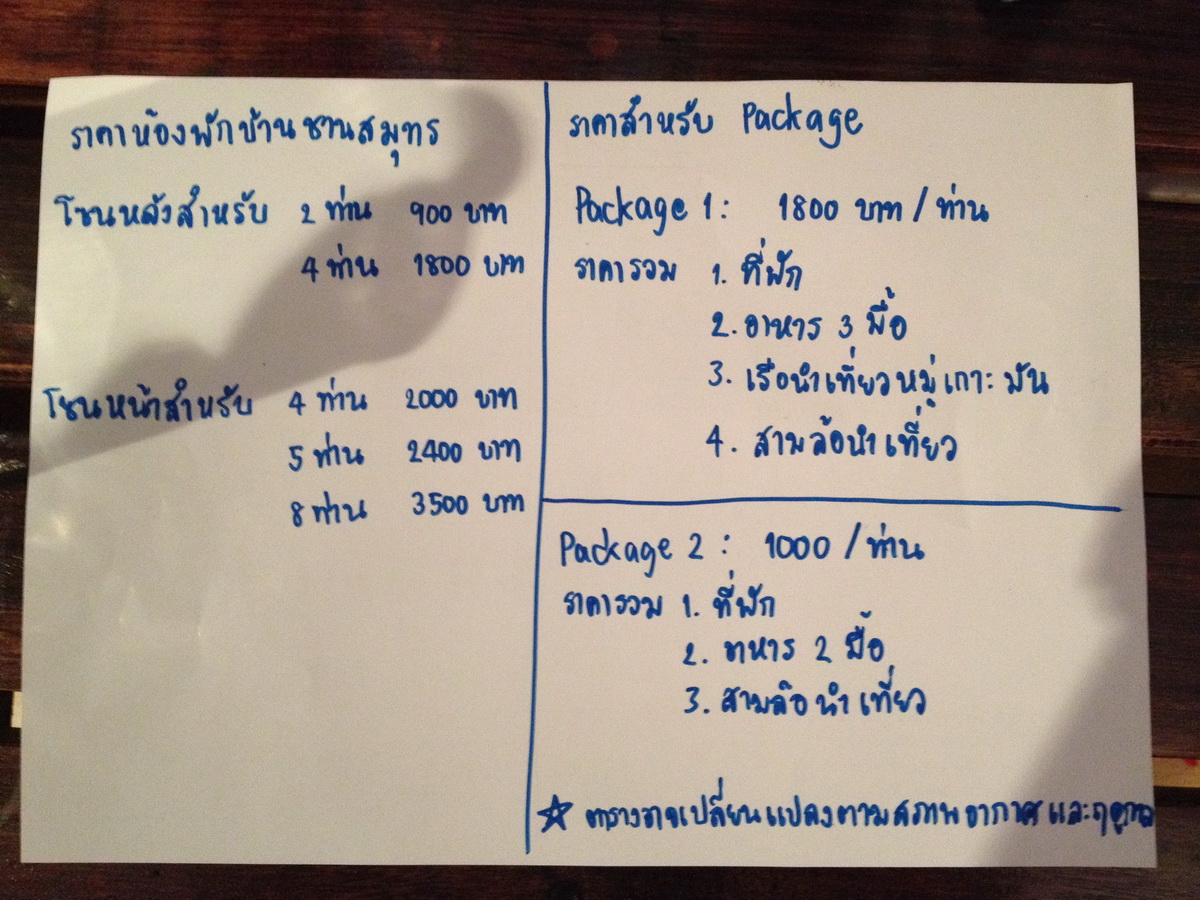 ราคาห้องพักบ้านชานสมุทร
โซนหลังสำหรับ 2 ท่าน 900 บาท
4 ท่าน 1800 บาท
โซนหน้าสำหรับ 4 ท่าน 2000 บาท
5 ท่าน 2400 บาท
8 ท่าน 3500 บาท
ราคาสำหรับ Package
Package 1: 1800 บาท / ท่าน
ราคารวม 1. ที่พัก
2. อาหาร 3 มื้อ
3. เรือนำเที่ยวหมู่เกาะมัน
4. สามล้อนำเที่ยว
Package 2 : 1000 / ท่าน
ราคารวม 1. ที่พัก
2. อาหาร 2 มื้อ
3. สามล้อนำเที่ยว
☆ ตารางอาจเปลี่ยนแปลงตามสภาพอากาศและฤดูกาล